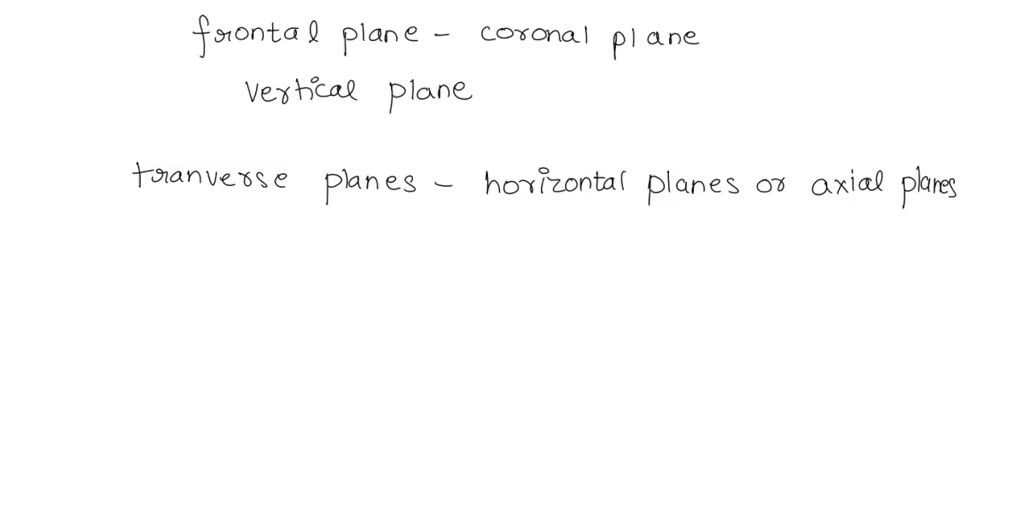 frontal plane - coronal plane
vertical plane
tranverse planes - horizontal planes or axial planes